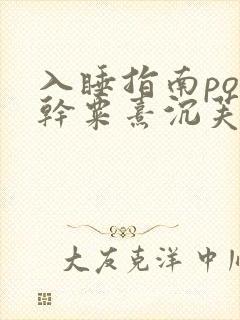 入睡指南po
幹粟熹沉芙
大友克洋 中